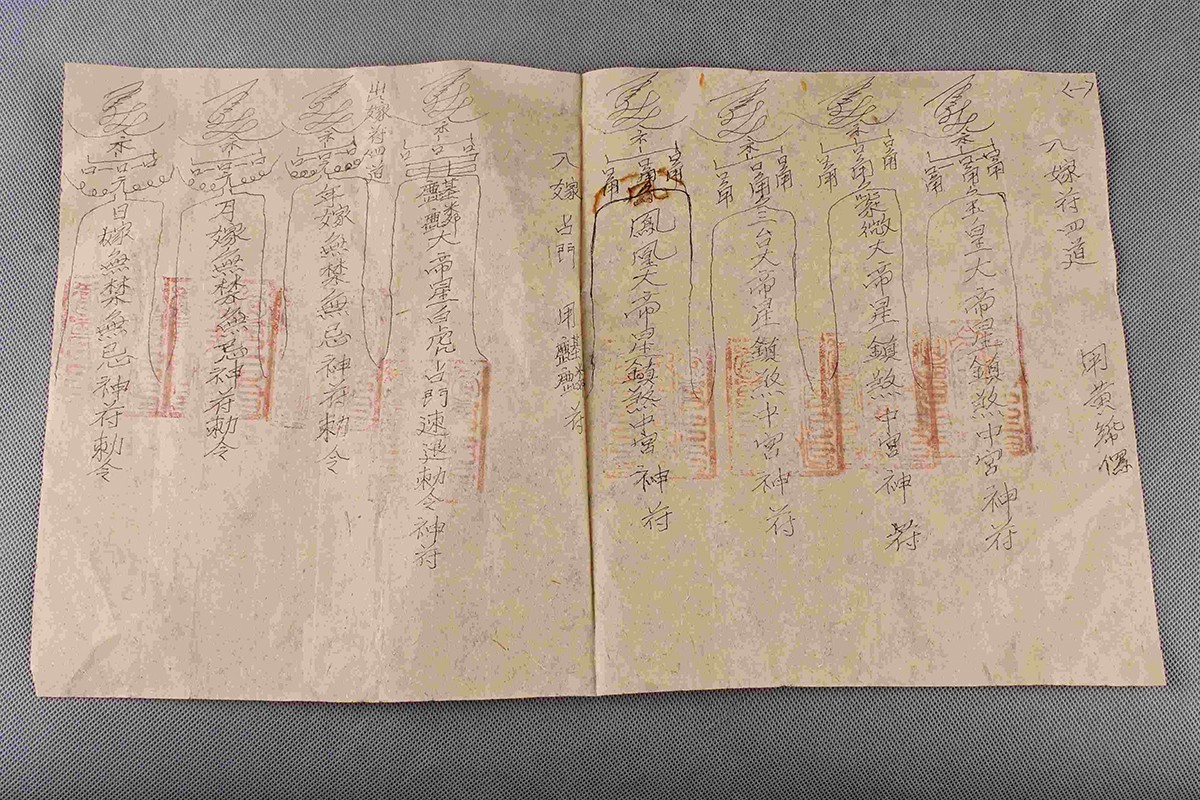 (一)
入嫁符四道
用黄
玉皇大帝星鎮煞中宮神符
紫微大帝星鎮煞中宮神符
三台大帝星鎮煞中宮神符
鳳凰大帝星鎮煞中宮神符
入嫁占門
用 符
大帝星白虎占門速退勅令神符
出嫁符四道
年嫁無禁無忌神符勅令
月嫁無禁無忌神符勅令
日嫁無禁無忌神符勅令